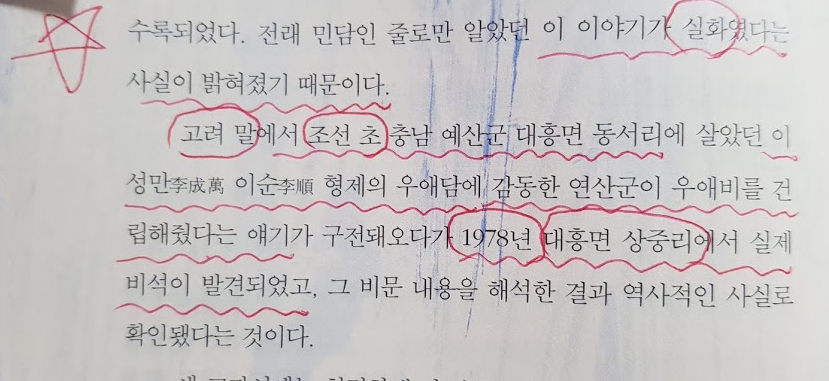 수록되었다. 전래 민담인 줄로만 알았던 이 이야기가 실화였다는
사실이 밝혀졌기 때문이다.
고려 말에서 조선 초 충남 예산군 대흥면 동서리에 살았던 이
성만李成萬 이순李順 형제의 우애담에 감동한 연산군이 우애비를 건
립해줬다는 얘기가 구전돼오다가 1978년 대흥면 상중리에서 실제
비석이 발견되었고, 그 비문 내용을 해석한 결과 역사적인 사실로
확인됐다는 것이다.